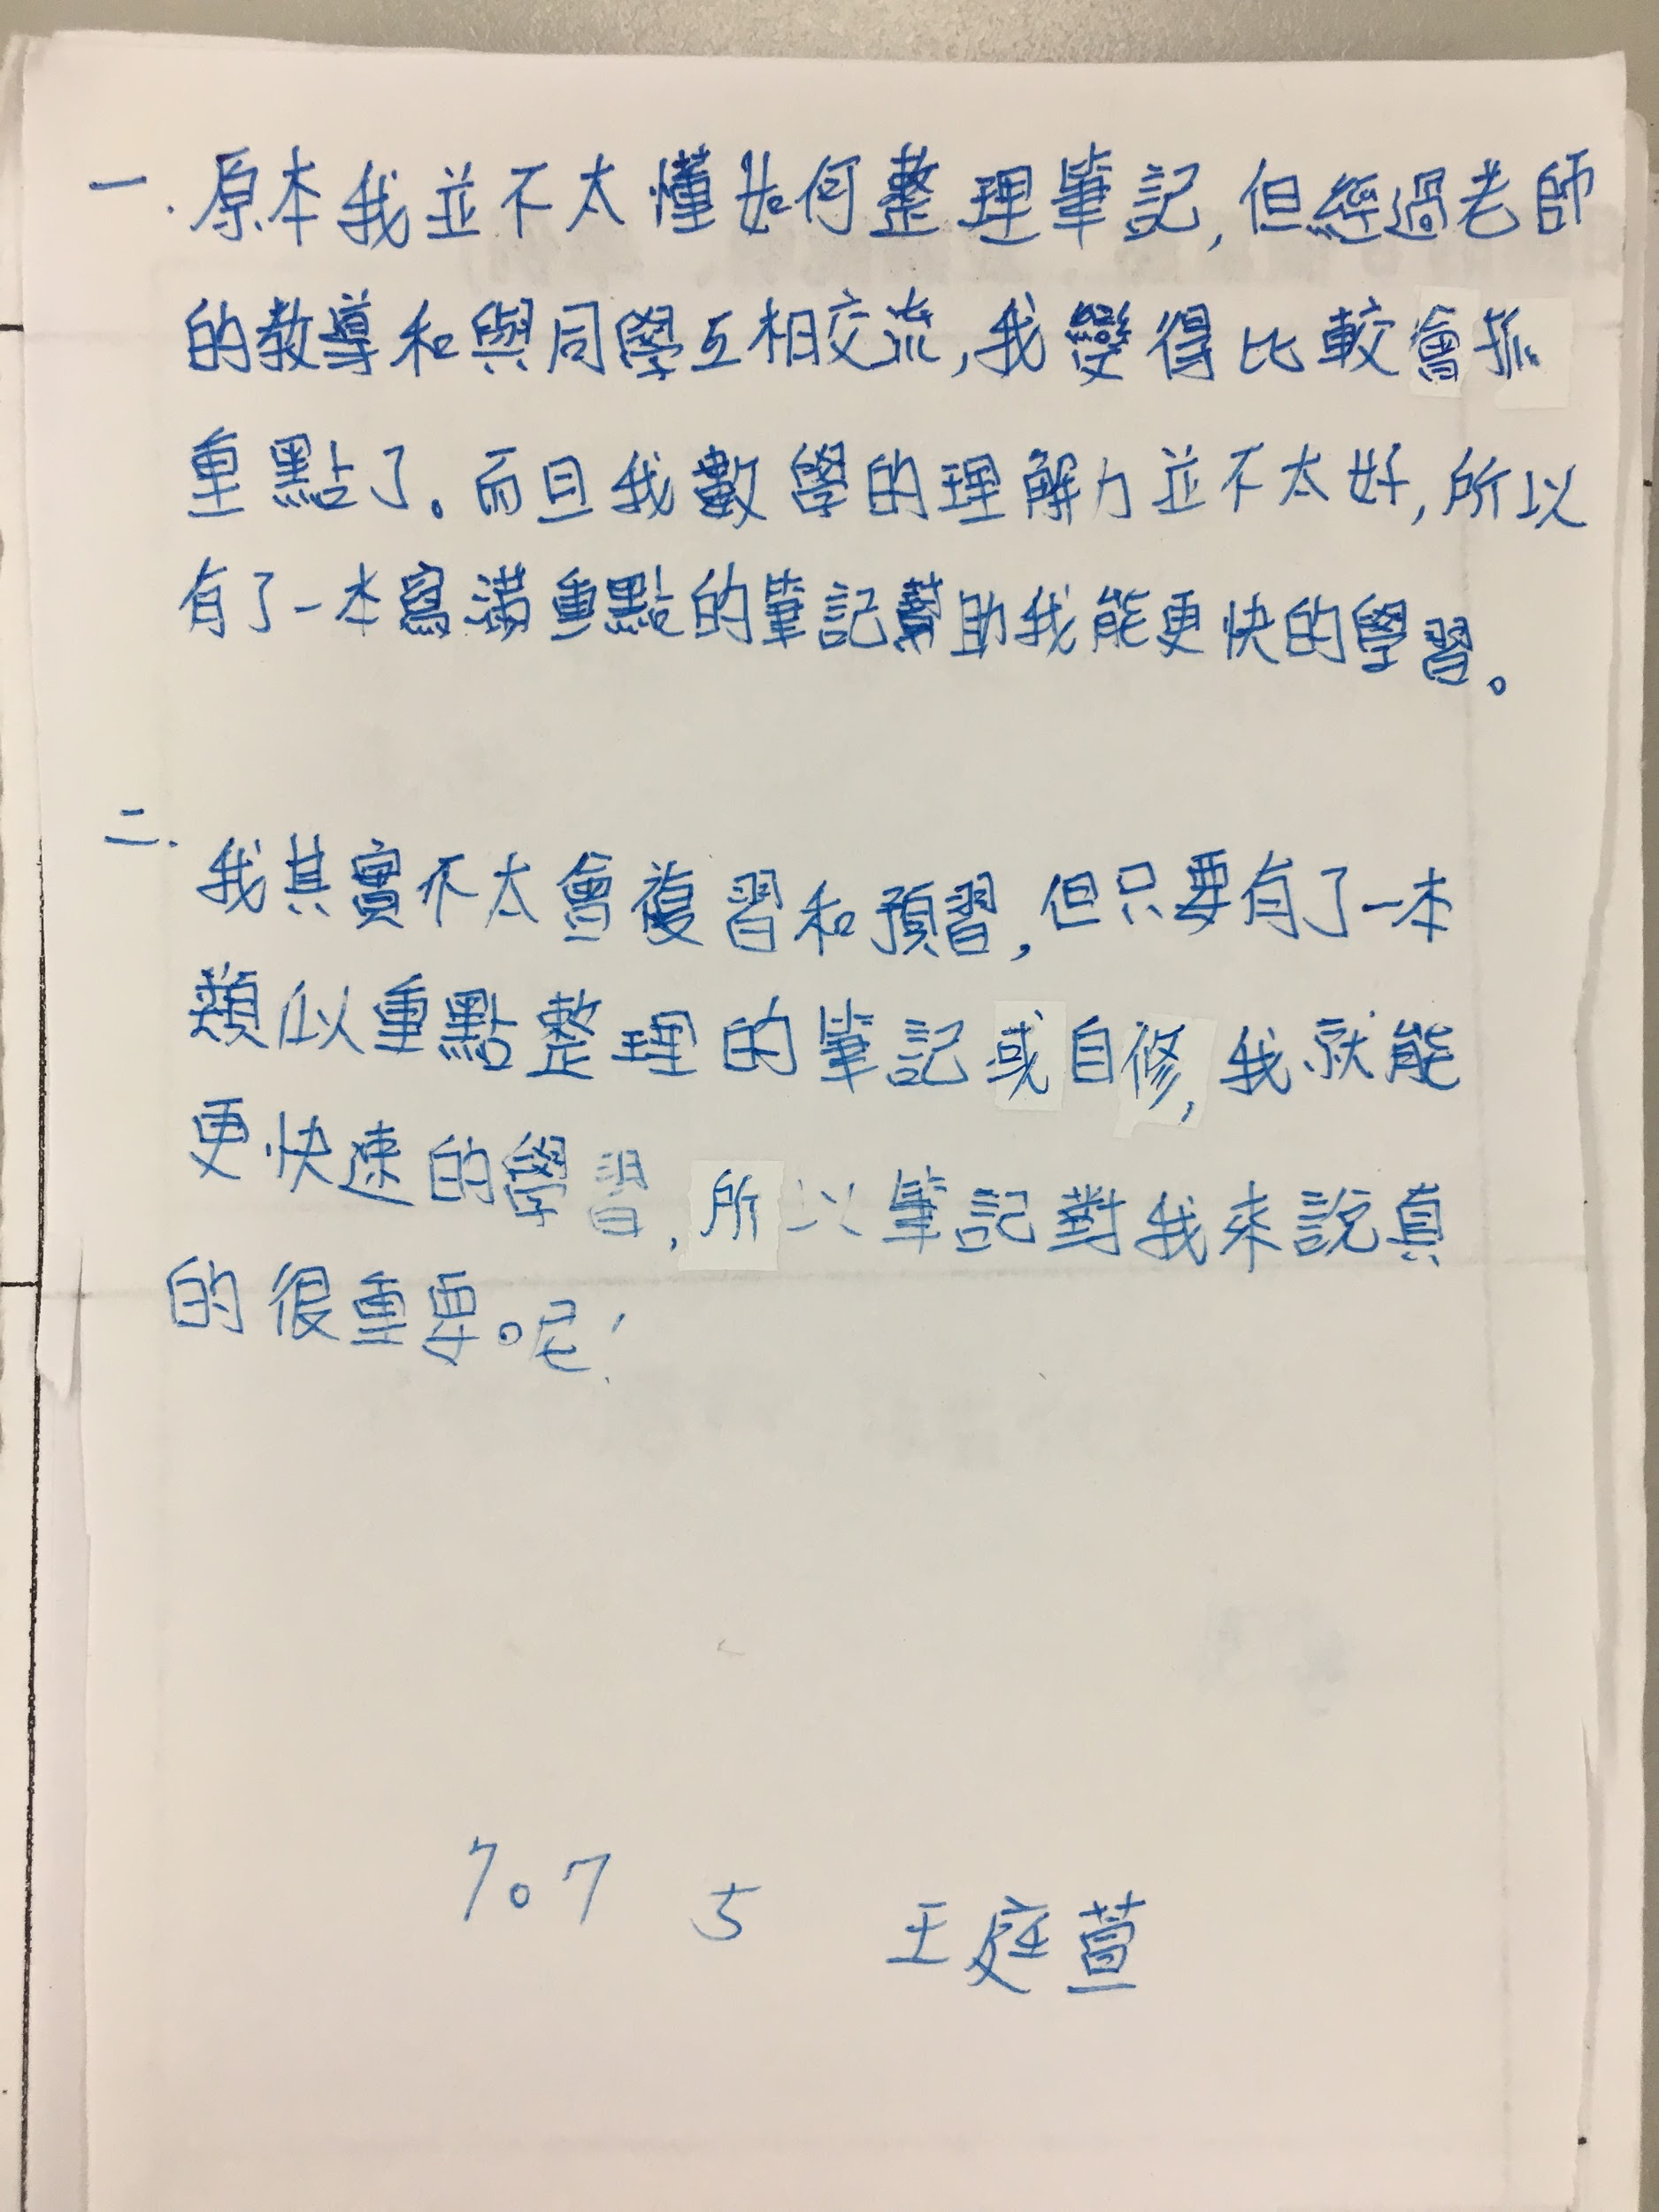 一.原本我並不太懂如何整理筆記,但經過老師
的教導和與同學互相交流,我變得比較會抓
重點了。而且我數學的理解力並不太好,所以
有了一本寫滿重點的筆記幫助我能更快的學習。
二.我其實不太會複習和預習,但只要有了一本
類似重點整理的筆記或自修,我就能
更快速的學習,所以筆記對我來說真
的很重要。呢!
707 5 王庭萱